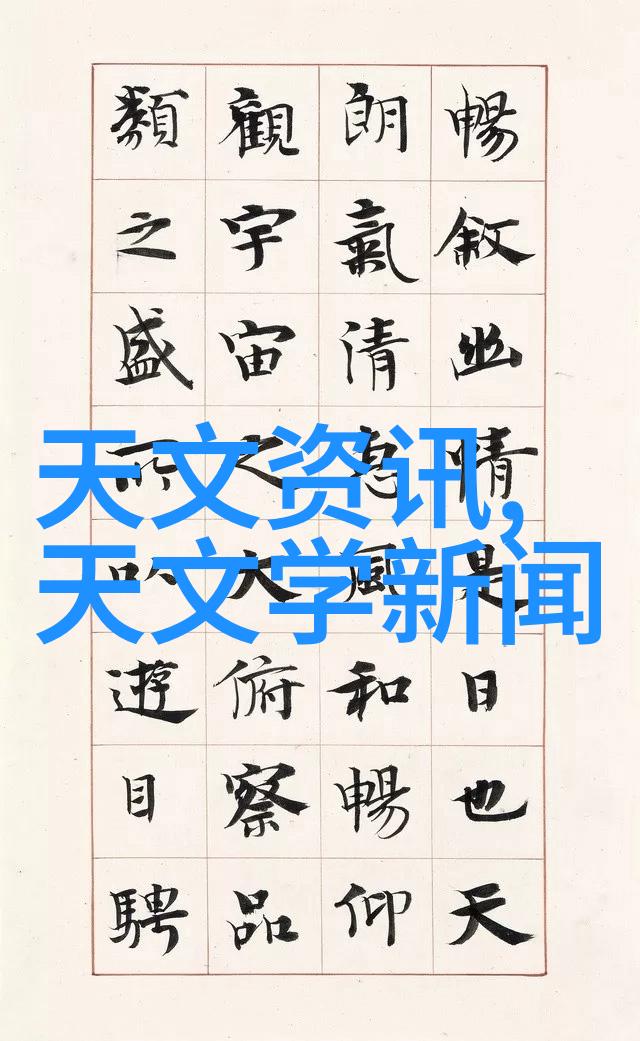 暢敘幽情是日也天
朗氣清惠風和暢仰
觀宇宙之大俯察品
類之盛所以遊目騁
天文资讯,
天文学新闻